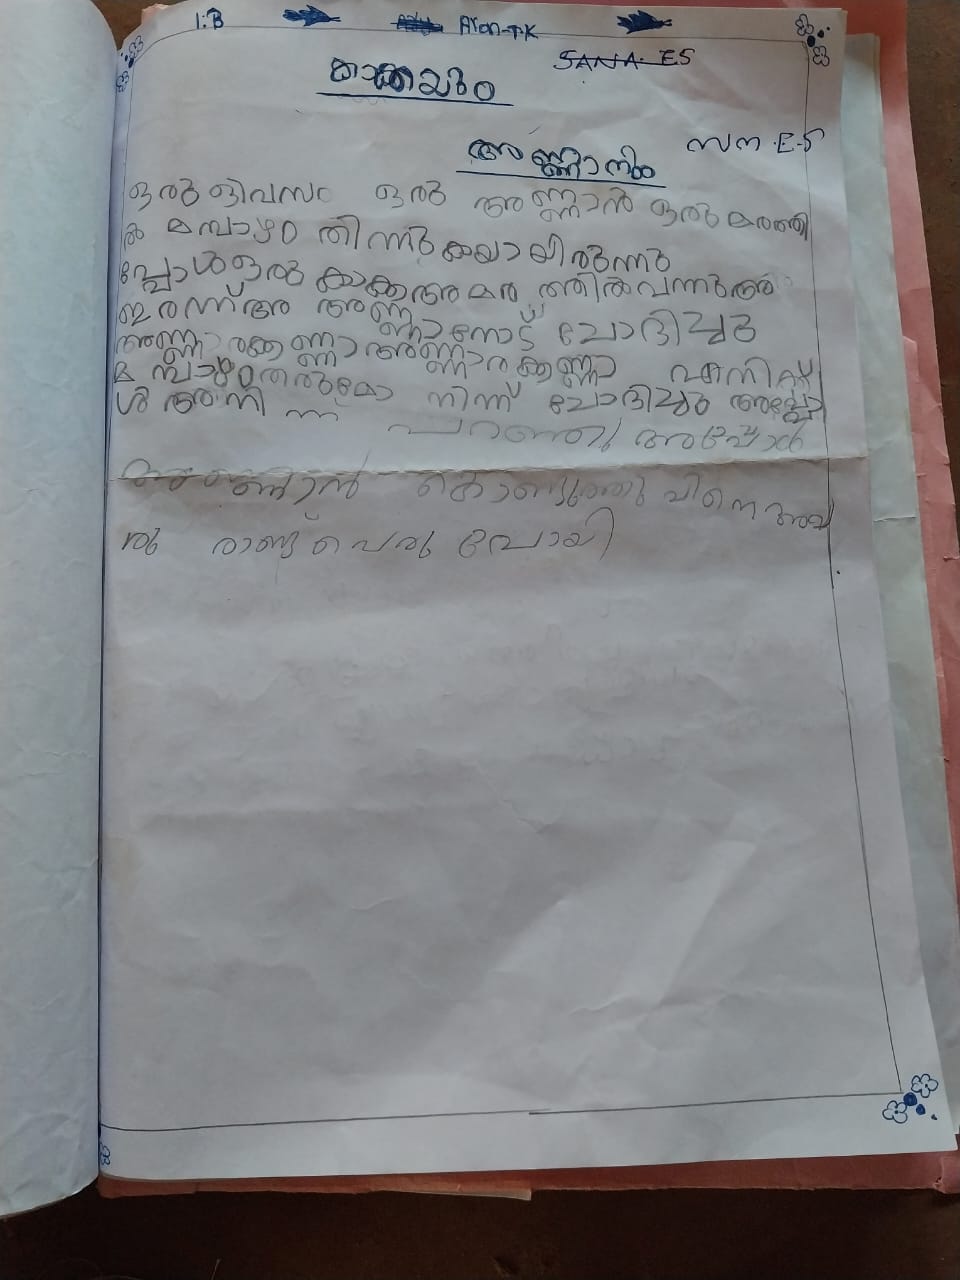 1.B Alon-T.K
SANA. ES
കാക്കയും
അണ്ണാനും
സന .E-S
ഒരു ദിവസം ഒരു അണ്ണാൻ ഒരു മരത്തി
ൽ മമ്പാഴം തിന്നുകയായിരുന്നു
പ്പോൾ ഒരു കാക്ക ആ മര ത്തിൽ വന്നു
ഇരന്ന് അണ്ണാനോട് ചോദിച്ചു
അണ്ണാരക്കണ്ണാ അണ്ണാരക്കണ്ണാ
മമ്പാഴം തരുമോ നിന്ന് ചോദിച്ചു അപ്പോ
ൾ പറഞ്ഞു അപ്പോൾ
അണ്ണാൻ കൊണ്ടുത്തു പിനെ അവ
രു രാണ്ട് പെരു പോയി